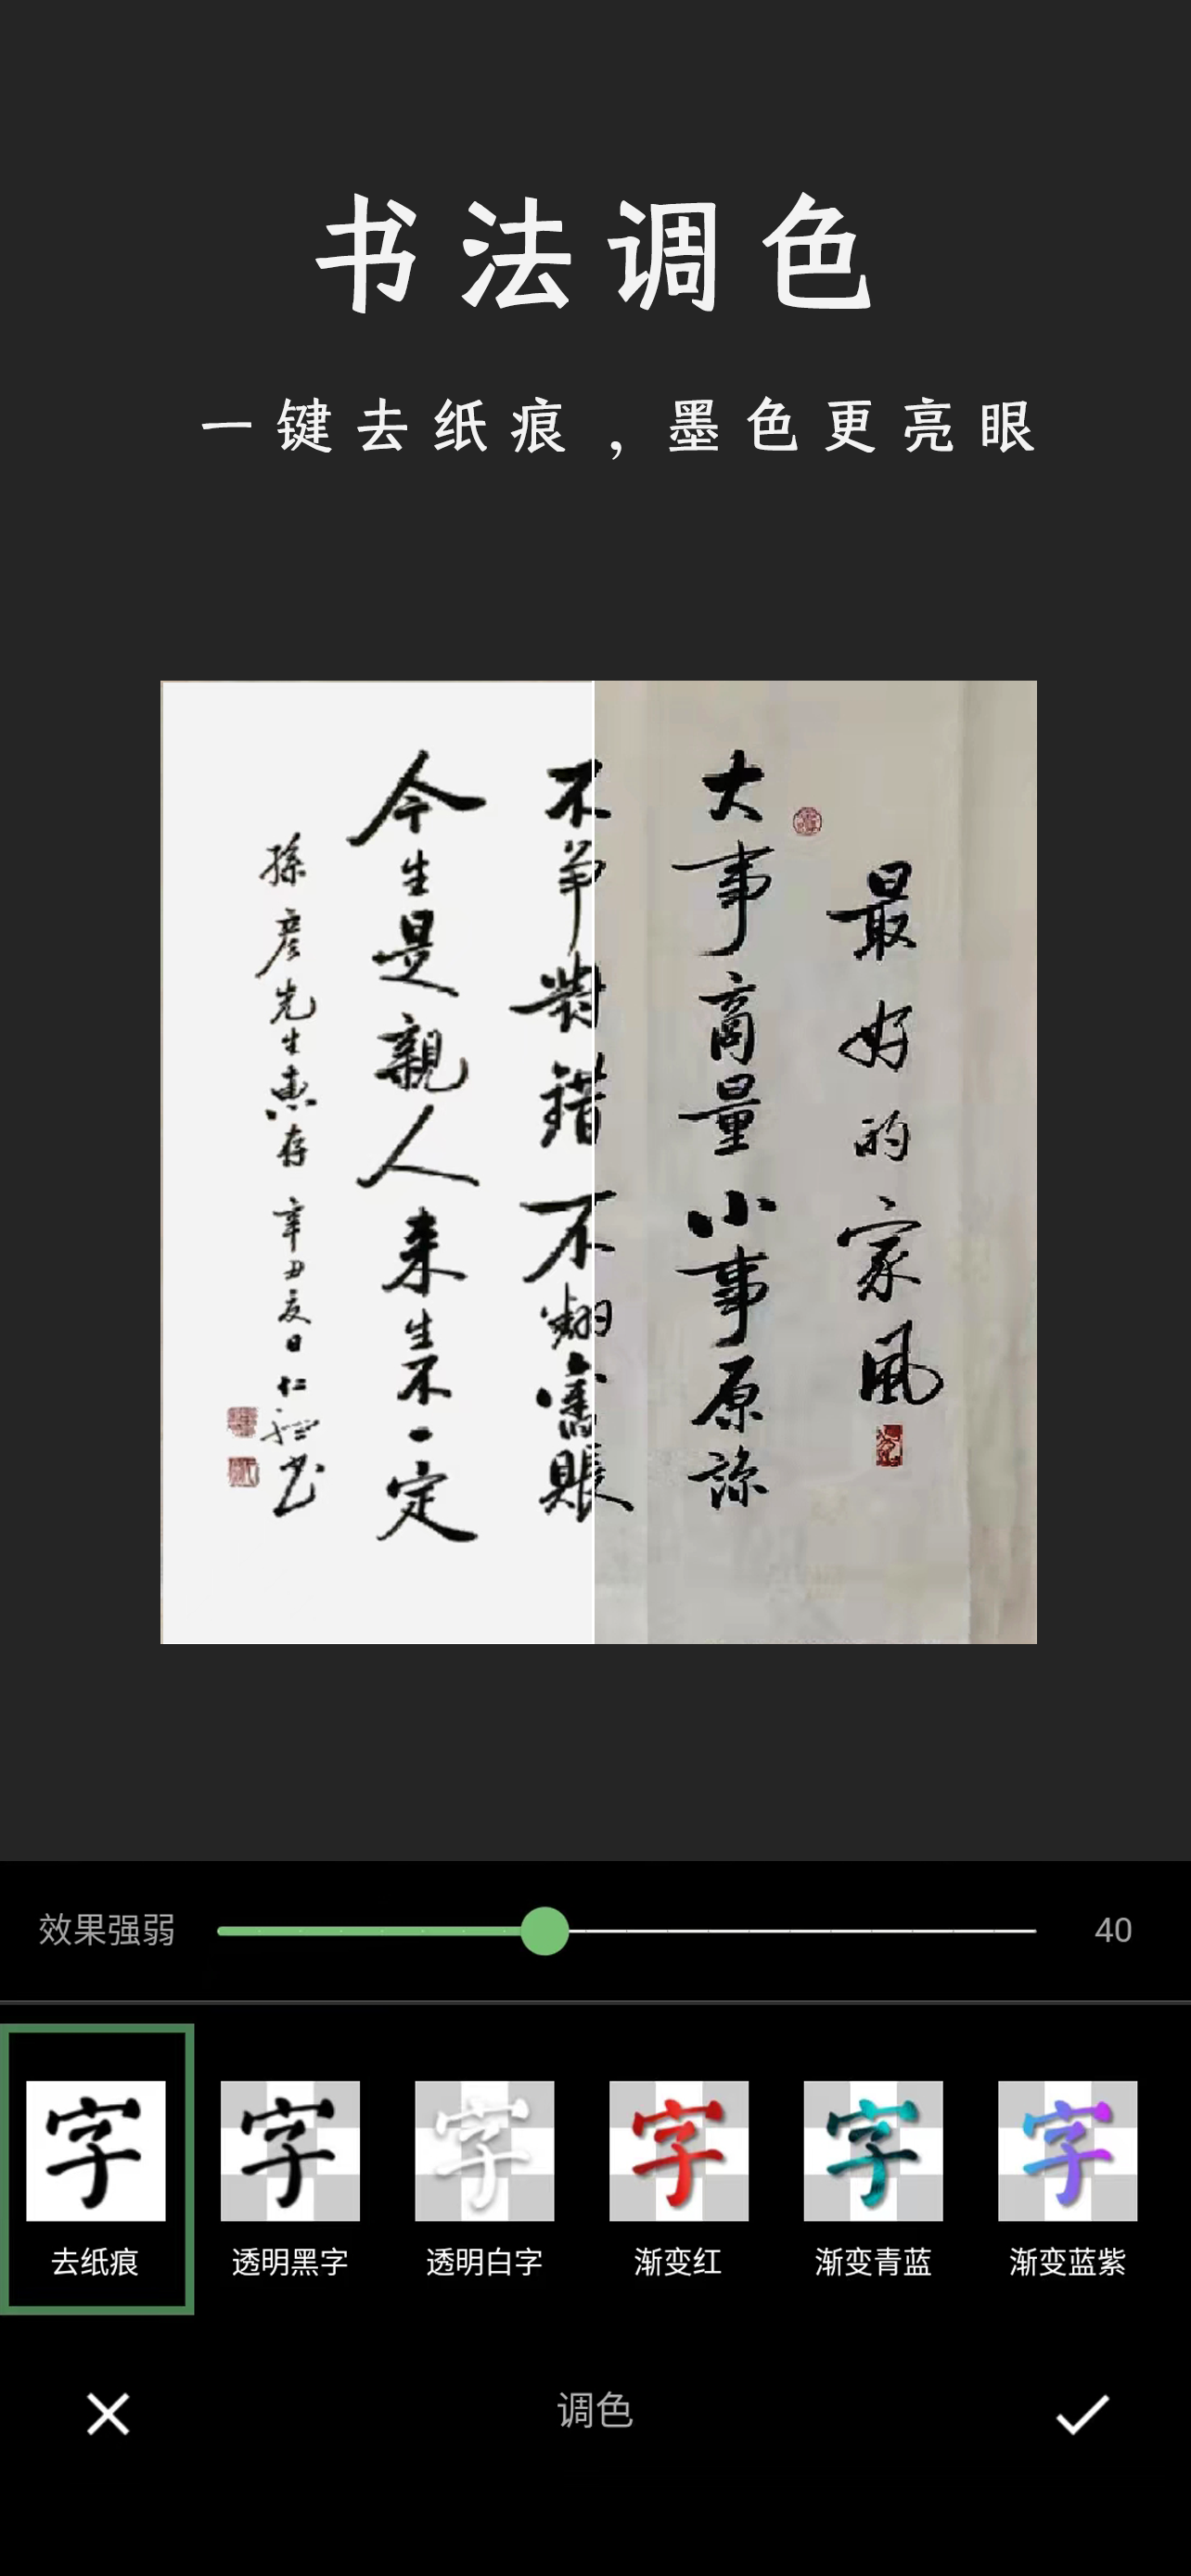 书法调色
一键去纸痕，墨色更亮眼
最好的家風
大事商量小事原諒
不爭對錯不翻舊賬
今生是親人来生不一定
孫彦先生惠存 辛丑夏日 仁
效果强弱 40
去纸痕 透明黑字 透明白字 渐变红 渐变青蓝 渐变蓝紫
调色